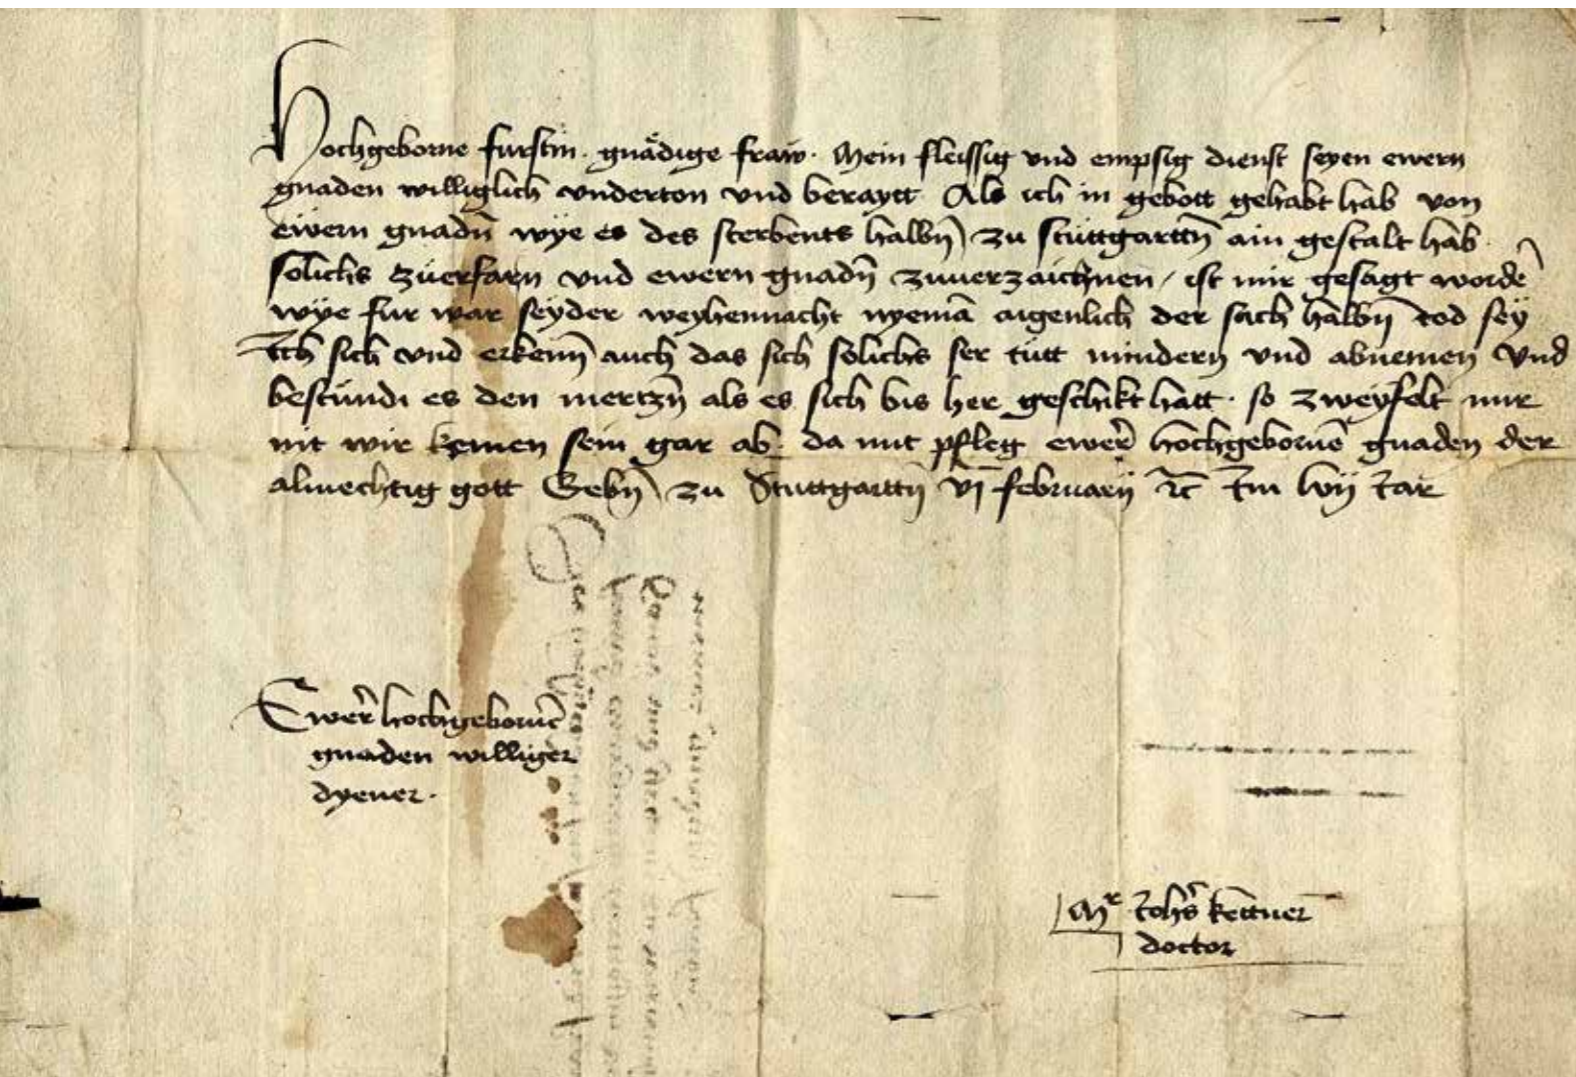 Hochgeborne furstin. gnädige fraw. Mein fleissig vnd empsig dienst seyen ewern
gnaden williglich vnderton vnd beraytt Als ich in gebott gehabt hab von
ewern gnadn̄ wye es des sterbents halbn̄ zu stuttgarttn̄ ain gestalt hab.
solichs zuerfarn vnd ewern gnadn̄ zuuerzaichnen / ist mir gesagt wordē
wye fur war seyder weyhennacht nyemā aigenlich der sach halbn̄ tod sey
Ich sich vnd erkenn̄ auch das sich solichs ser tutt mindern vnd abnemen Vnd
bestündi es den mertzn̄ als es sich bis her geschikt hatt. so zweyfelt mir
nit wir kemen sein gar ab. da mit pfleg ewer̄ hochgebornē gnaden der
almechtig gott Gebn̄ zu Stuttgarttn̄ vj februarij Im lvij Iar
Ewer̄ hochgebornē
gnaden williger
dyener.
Mr Johs̄ kettner
doctor